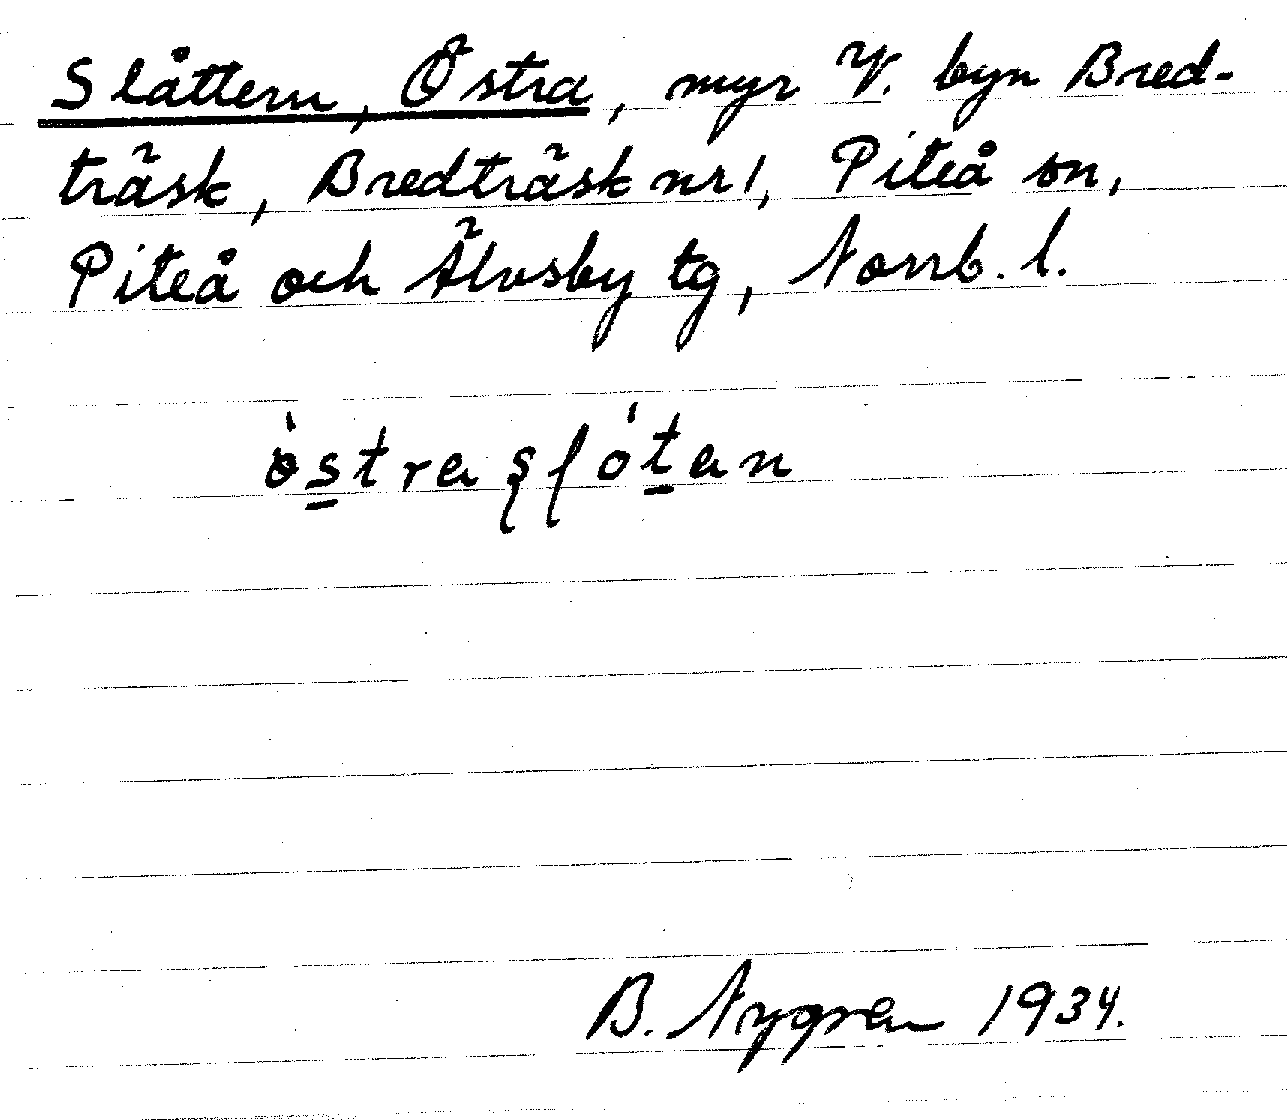 Slåttern, Östra, myr V. byn Bred-
träsk, Bredträsk nr 1, Piteå sn,
Piteå och Älvsby tg, Norrb. l.
östra slotan
B. Nygren 1934.